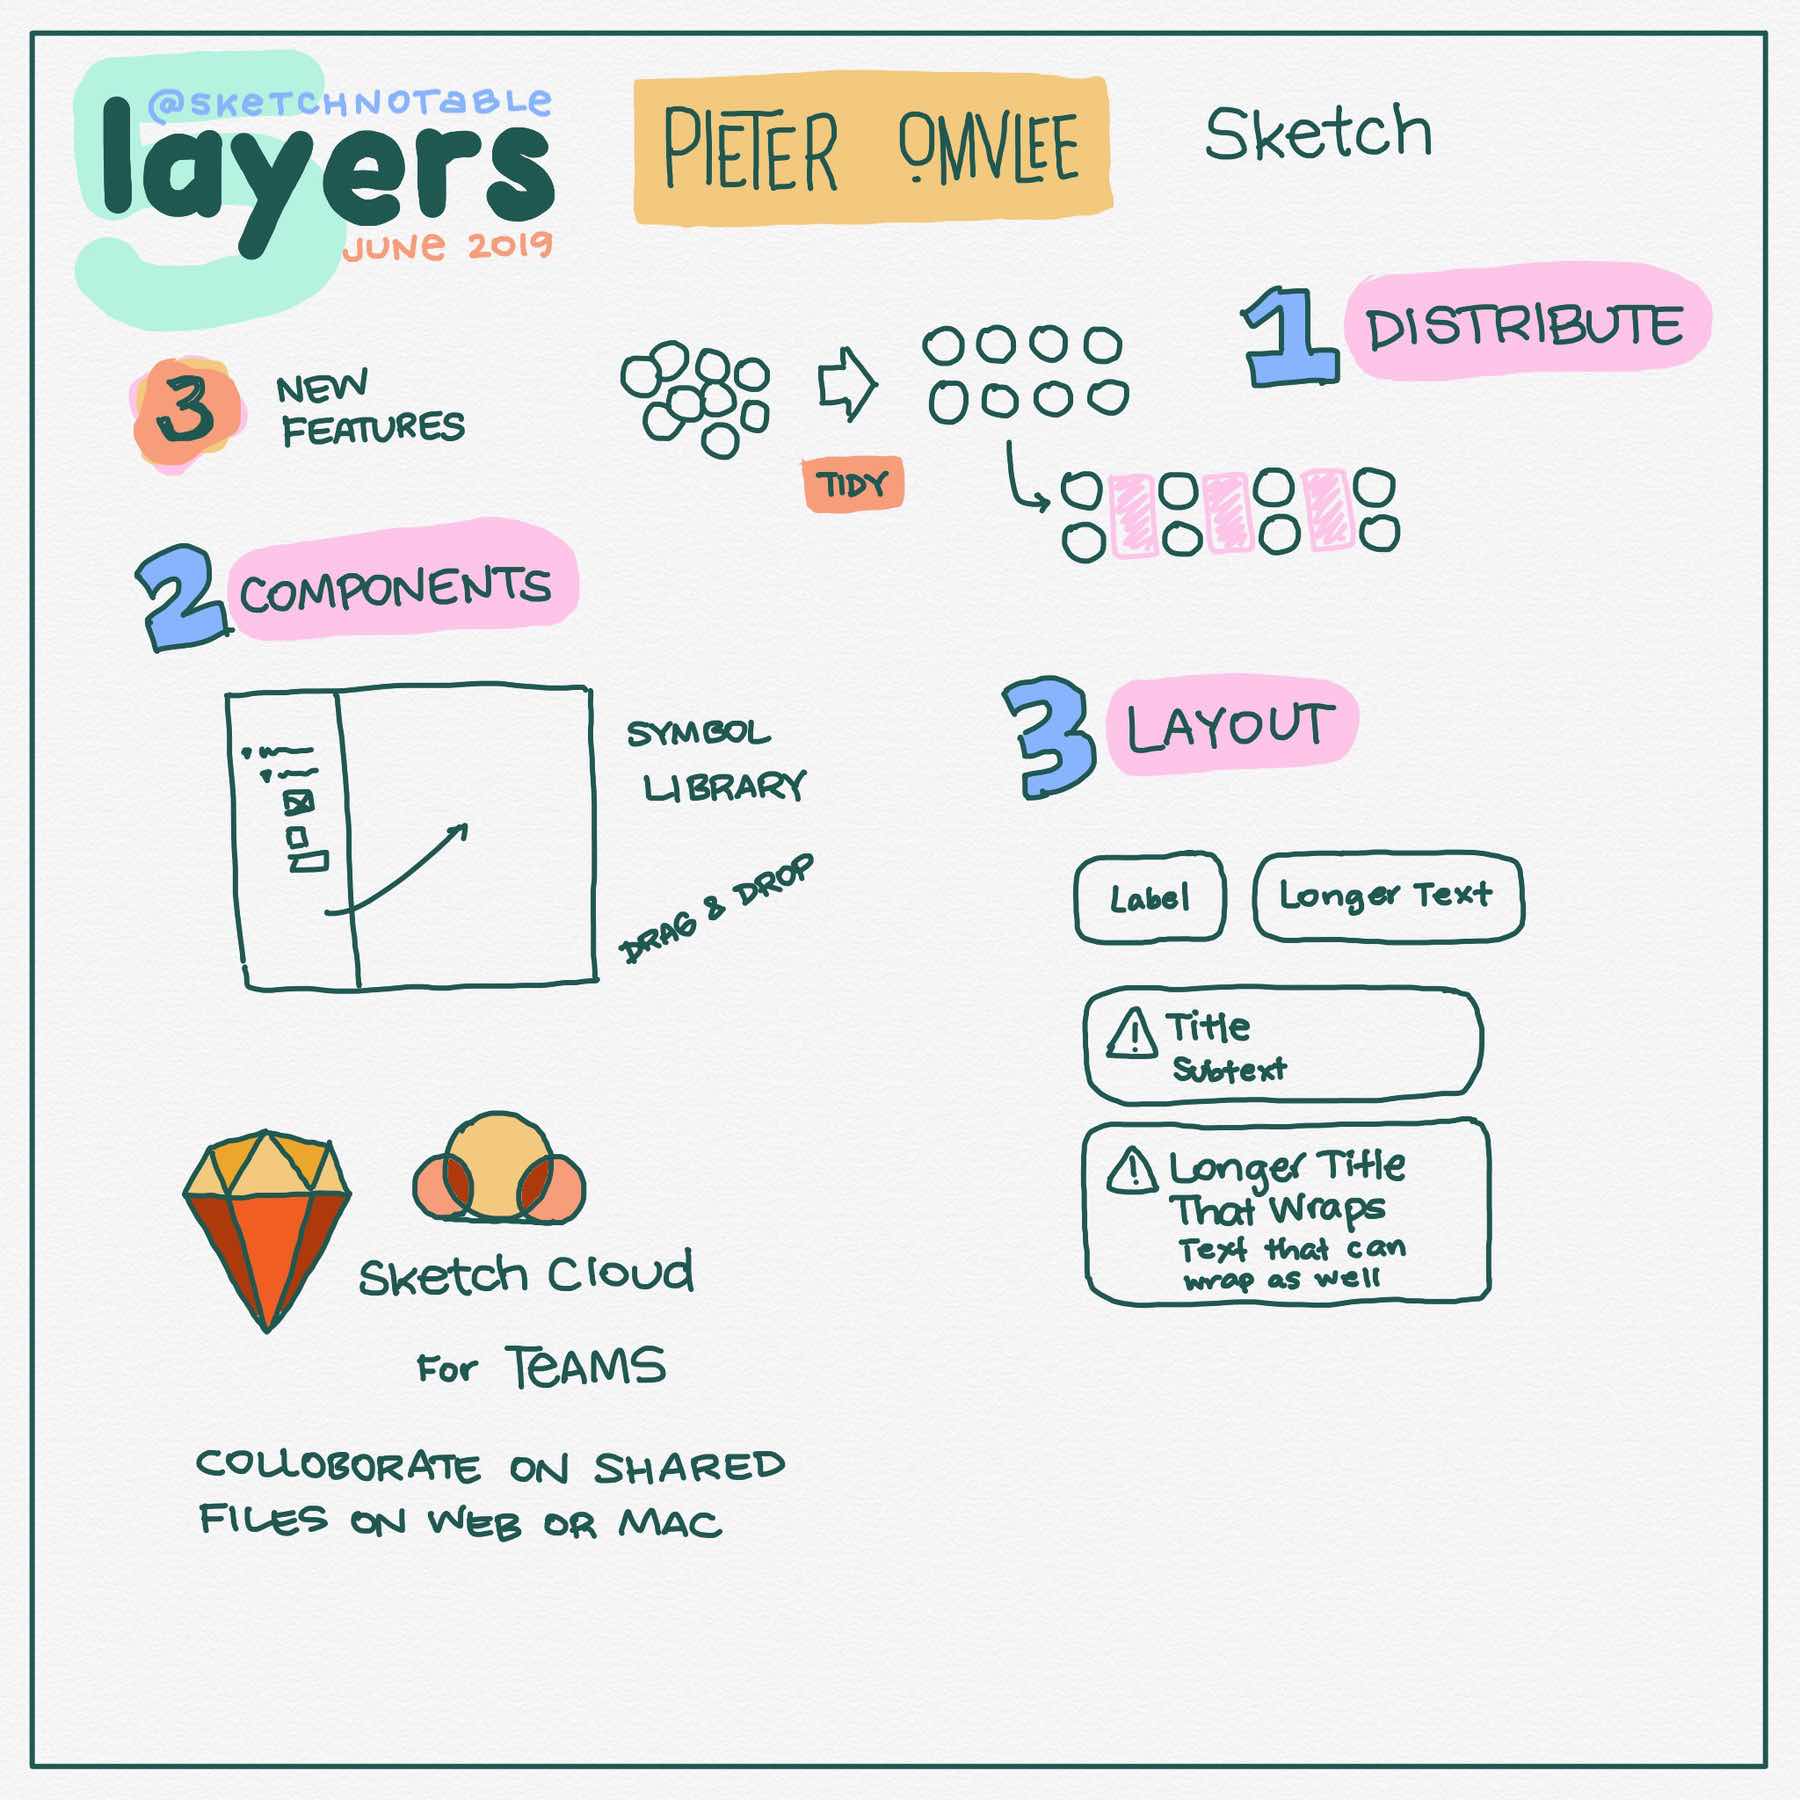 @SKETCHNOTABLE
layers
JUNE 2019
5
PIETER OMVLEE
Sketch
3 NEW
FEATURES
TIDY
1 DISTRIBUTE
2 COMPONENTS
SYMBOL
LIBRARY
DRAG & DROP
3 LAYOUT
Label
Longer Text
! Title
Subtext
! Longer Title
That Wraps
Text that can
wrap as well
Sketch Cloud
For TeAMS
COLLOBORATE ON SHARED
FILES ON WEB OR MAC